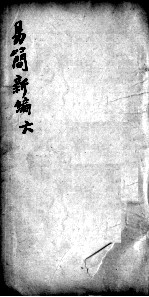 易簡新編六